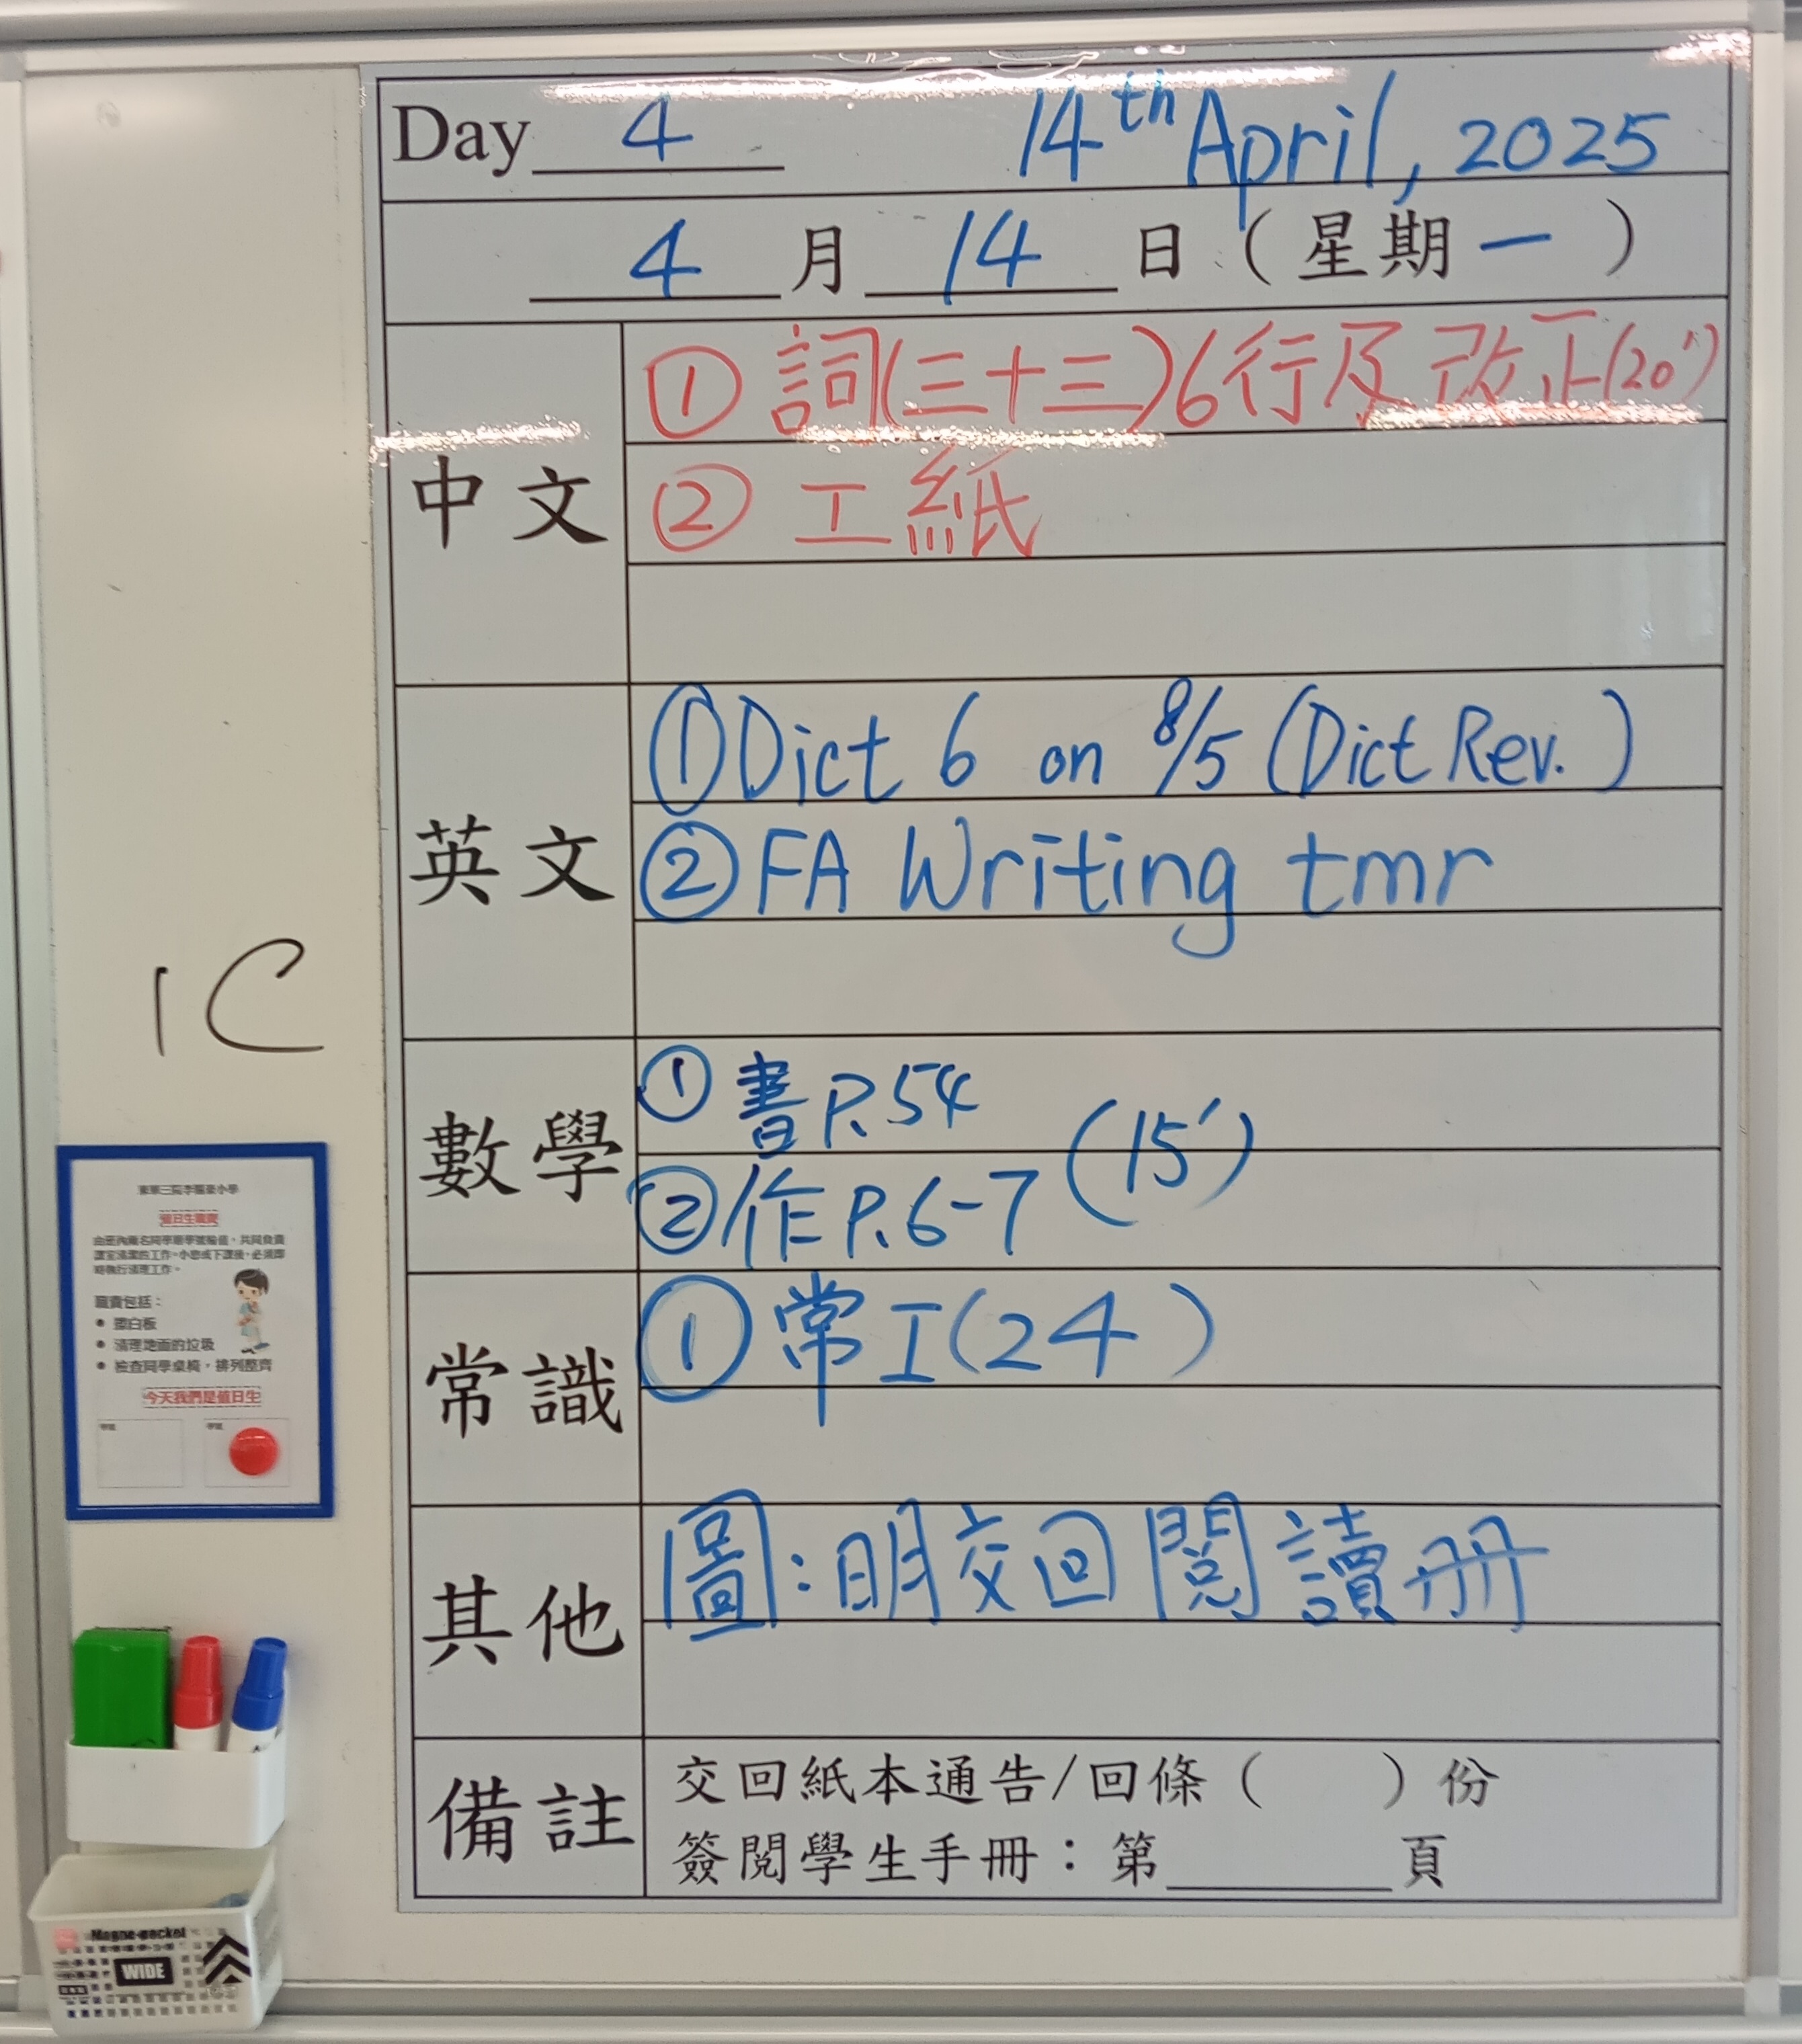 Day 4 14th April, 2025
4 月 14 日 (星期一)
中文
① 詞(三十三)6行及改正(20')
② 工紙
英文
① Dict 6 on 8/5 (Dict Rev.)
② FA Writing tmr
數學
① 書P.54
② 作P.6-7 (15')
常識
① 常工(24)
其他
圖:明交回閱讀冊
備註
交回紙本通告/回條( )份
簽閱學生手冊:第______頁
1C
值日生職責
職責包括:
• 擦白板
• 清理地面的垃圾
• 檢查同學桌椅,排列整齊
今天我們是值日生
學號 學號
Magne-pocket
WIDE